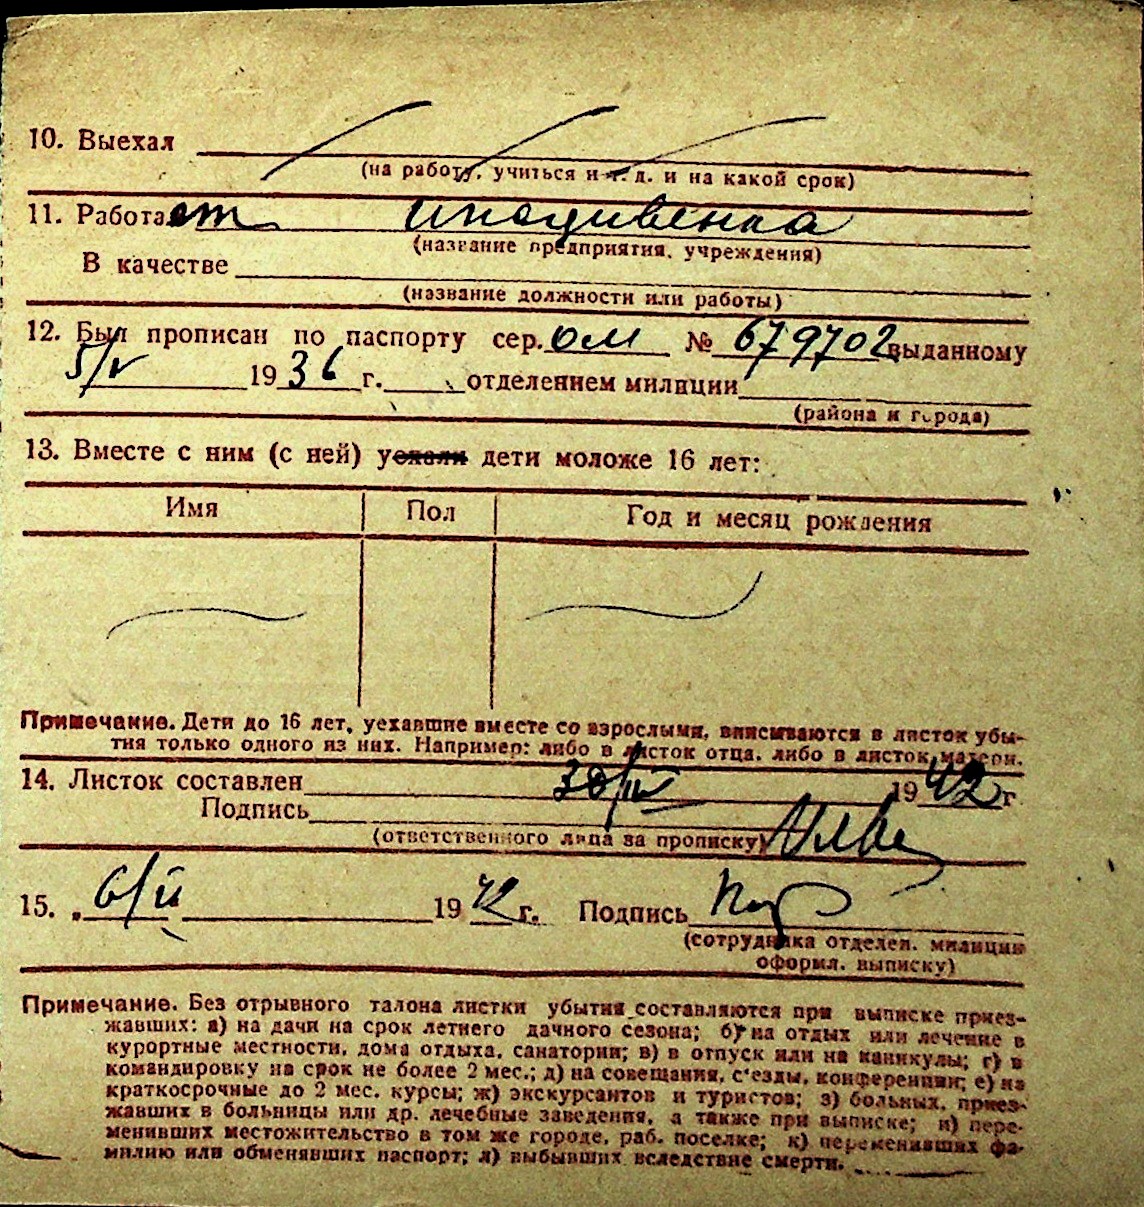 10. Выехал
(на работу, учиться и т. д. и на какой срок)
11. Работает иждивенка
(название предприятия, учреждения)
В качестве
(название должности или работы)
12. Был прописан по паспорту сер. ОМ № 679702 выданному
5/V 1936 г. отделением милиции
(района и города)
13. Вместе с ним (с ней) уехали дети моложе 16 лет:
Имя Пол Год и месяц рождения
Примечание. Дети до 16 лет, уехавшие вместе со взрослыми, вписываются в листок убы-
тия только одного из них. Например: либо в листок отца, либо в листок матери.
14. Листок составлен 30/ 1942 г
Подпись
(ответственного лица за прописку)
15. „ 6/ 1942 г. Подпись
(сотрудника отделен. милиции
оформл. выписку)
Примечание. Без отрывного талона листки убытия составляются при выписке приез-
жавших: а) на дачи на срок летнего дачного сезона; б) на отдых или лечение в
курортные местности, дома отдыха, санатории; в) в отпуск или на каникулы; г) в
командировку на срок не более 2 мес.; д) на совещания, с'езды, конференции; е) на
краткосрочные до 2 мес. курсы; ж) экскурсантов и туристов; з) больных, приез-
жавших в больницы или др. лечебные заведения, а также при выписке; и) пере-
менивших местожительство в том же городе, раб. поселке; к) переменивших фа-
милию или обменявших паспорт; л) выбывших вследствие смерти.